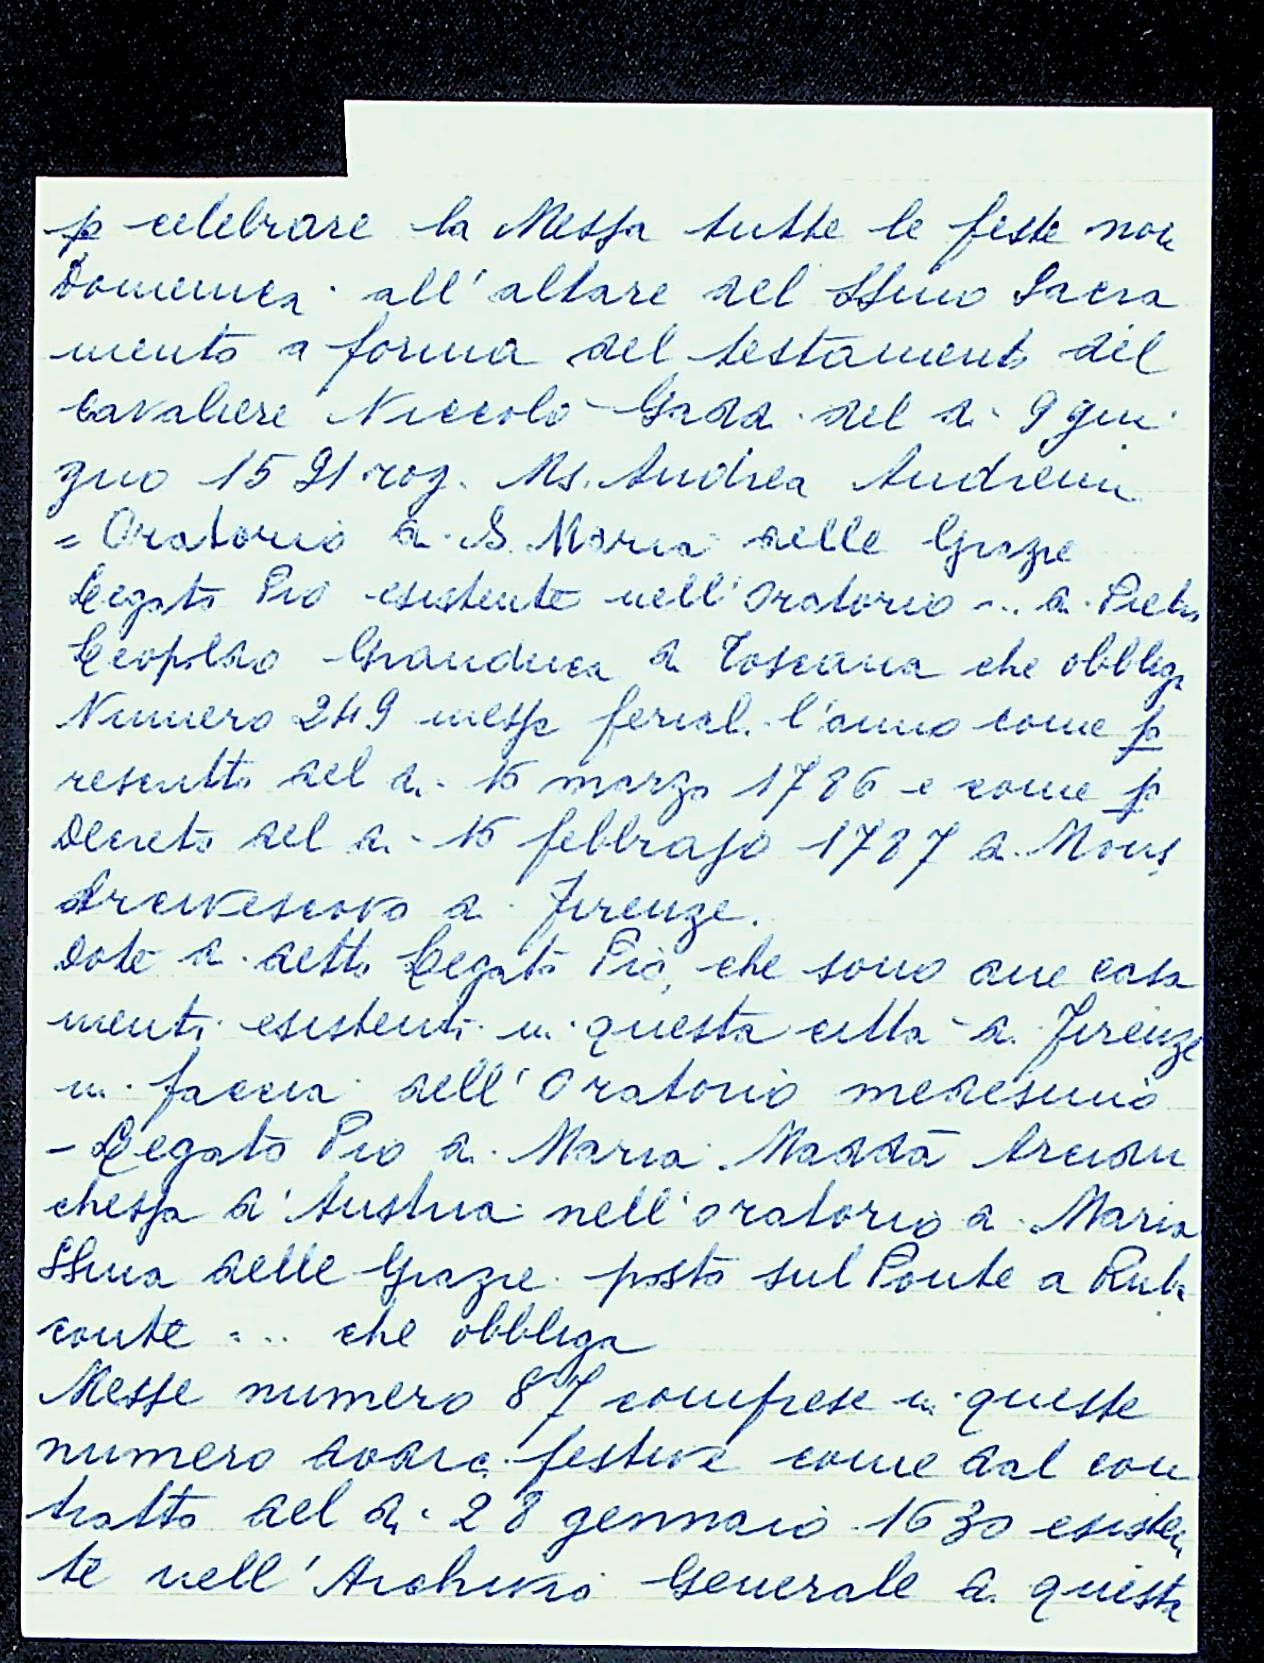 p celebrare la Messa tutte le feste non
Domenica all'altare del SSmo Sacra
mento a forma del testamento del
Cavaliere Niccolò Gaddi del dì 9 giu
gno 1591 rog. Ms. Andrea Andreini
= Oratorio di S. Maria delle Grazie
Legato Pio esistente nell'Oratorio ... di Pietro
Leopoldo Granduca di Toscana che obbliga
Numero 249 messe feriali l'anno come p
rescritto del dì 15 marzo 1786 e come p
Decreto del dì 15 febbrajo 1787 di Mons.
Arcivescovo di Firenze.
Dote di detto Legato Pio, che sono due casa
menti esistenti in questa città di Firenze
in faccia dell'Oratorio medesimo
- Legato Pio di Maria Maddā Arcidu
chessa d'Austria nell'oratorio di Maria
SSma delle Grazie posto sul Ponte a Ruba
conte ... che obbliga
Messe numero 87 comprese in queste
numero dodici festive come dal con
tratto del dì 28 gennaio 1630 esisten
te nell'Archivio Generale di questa